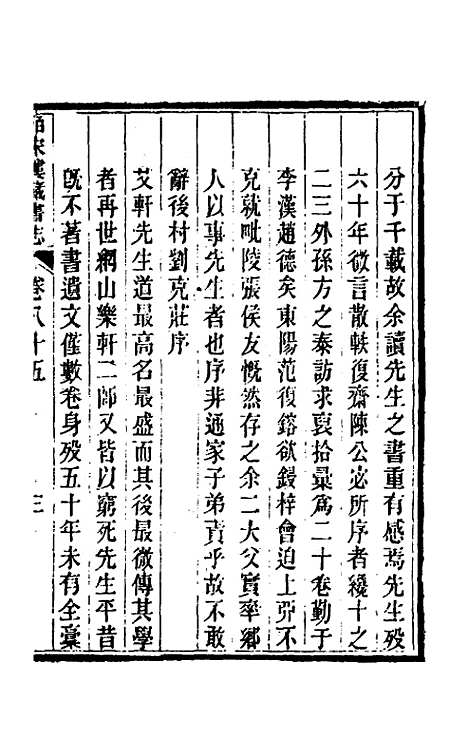 分于千載故余讀先生之書重有感焉先生歿
六十年微言散軼復齋陳公宓所序者纔十之
二三外孫方之泰訪求裒拾彙爲二十卷勤于
李漢趙德矣東陽范復鎔欲鋟梓會迫上弴不
克就毗陵張侯友慨然存之余二大父實率鄉
人以事先生者也序非通家子弟責乎故不敢
辭後村劉克莊序
艾軒先生道最高名最盛而其後最微傳其學
者再世網山樂軒二師又皆以窮死先生平昔
旣不著書遺文僅數卷身歿五十年未有全彙
皕宋樓藏書志
卷八十五
三